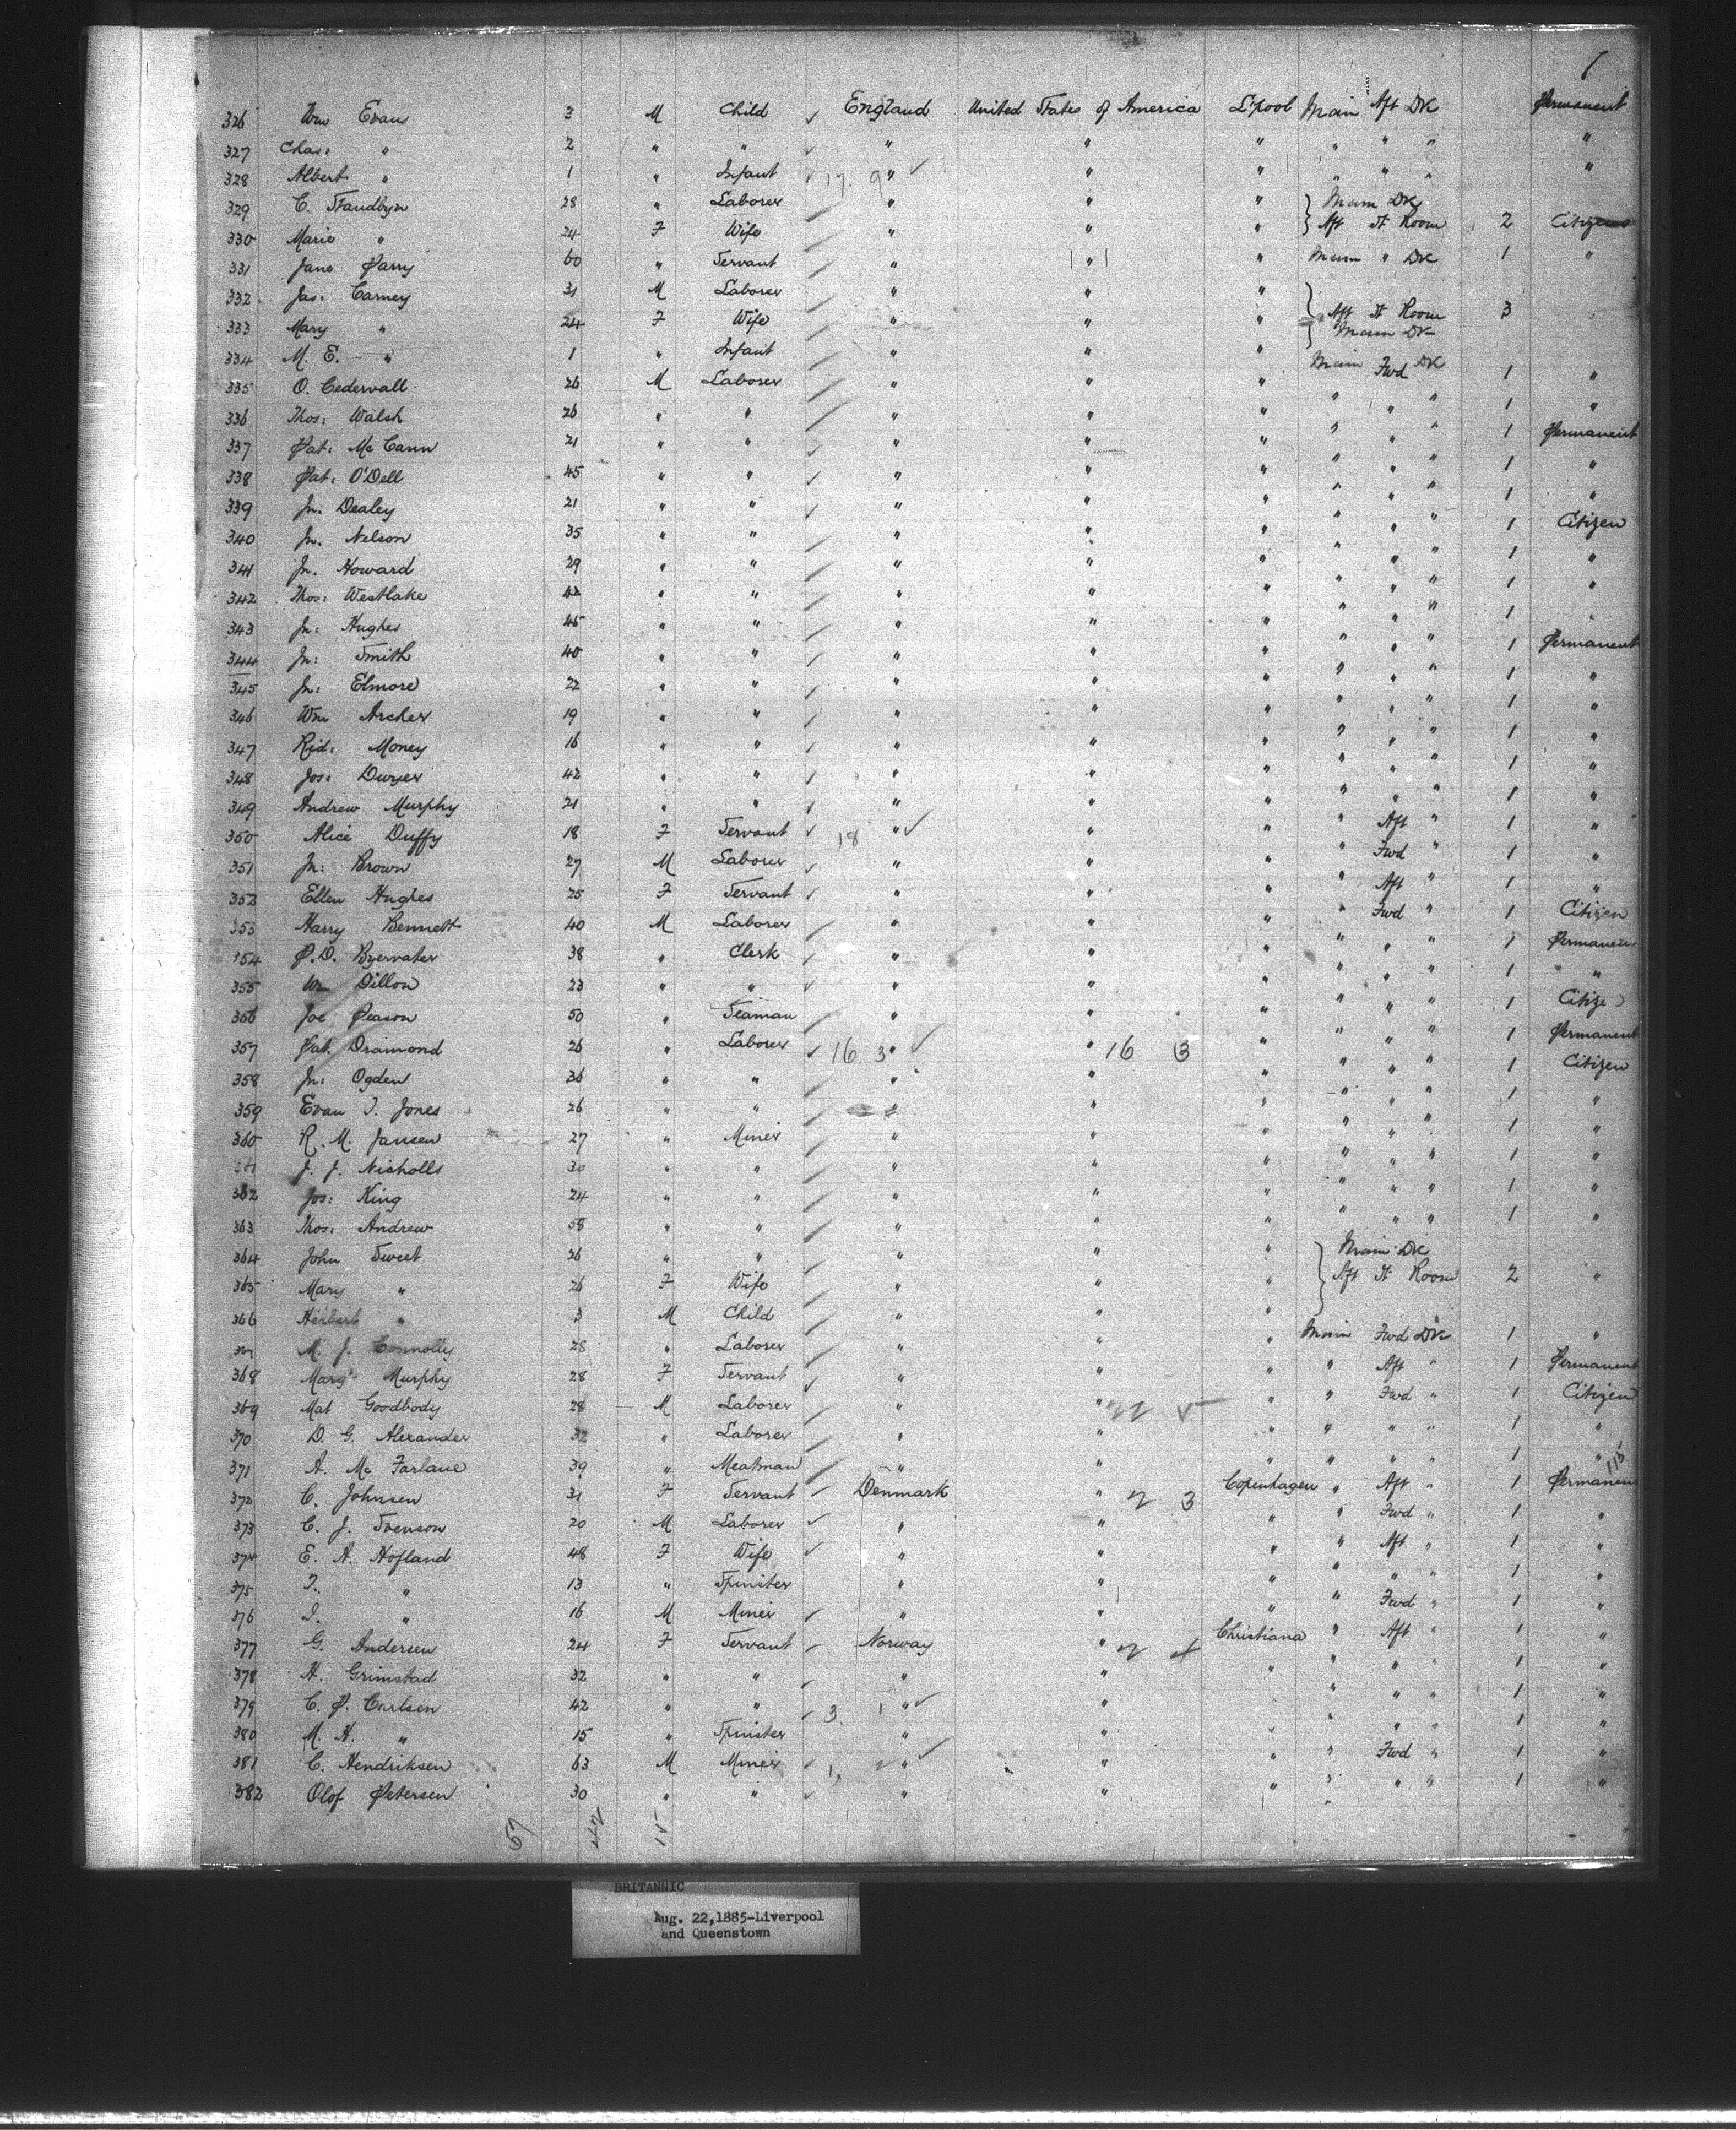 326 Wm Evan 3 M Child ✓ England United States of America L'pool Main Aft DK Permanent
327 Chas: " 2 " " ✓ " " " " " " "
328 Albert " 1 " Infant ✓ 17. 9 " ✓ " " " " " "
329 C. " 28 " Laborer " " " Main DK
330 Marie " 24 F Wife " " " Aft St Room 2 Citizens
331 Jane Parry 60 " Servant " " " Main " DK 1 "
332 Jas: Carney 31 M Laborer " " "
333 Mary " 24 F Wife " " " Aft St Room 3
Main DK
334 M. E. " 1 " Infant " " "
335 O. Cedervall 26 M Laborer " " " Main Fwd DK 1 "
336 Thos: Walsh 26 " " " " " " " " 1 "
337 Pat: Mc Cann 21 " " ✓ " " " " " " 1 Permanent
338 Pat: O'Dell 45 " " ✓ " " " " " " 1 "
339 Jn. Dealey 21 " " ✓ " " " " " " 1 "
340 Jn. Nelson 35 " " " " " " " " 1 Citizen
341 Jn. Howard 29 " " " " " " " " 1 "
342 Thos: Westlake 42 " " " " " " " " 1 "
343 Jn: Hughes 45 " " " " " " " " 1 "
344 Jn: Smith 40 " " ✓ " " " " " " 1 Permanent
345 Jn: Elmore 22 " " ✓ " " " " " " 1 "
346 Wm Archer 19 " " ✓ " " " " " " 1 "
347 Rid: Money 16 " " ✓ " " " " " " 1 "
348 Jos: Dwyer 42 " " ✓ " " " " " " 1 "
349 Andrew Murphy 21 " " ✓ " " " " " " 1 "
350 Alice Duffy 18 F Servant ✓ 18 " ✓ " " " Aft " 1 "
351 Jn: Brown 27 M Laborer ✓ " " " " Fwd " 1 "
352 Ellen Hughes 25 F Servant ✓ " " " " Aft " 1 "
353 Harry Bennett 40 M Laborer " " " " Fwd " 1 Citizen
354 P. D. Byervater 38 " Clerk ✓ " " " " " " 1 Permanent
355 Wm Dillon 23 " " ✓ " " " " " " 1 "
356 Joe Peason 50 " Seaman " " " " " " 1 Citize
357 Pat. Dramond 26 " Laborer ✓ 16 3 " ✓ " 16 3 " " " " 1 Permanent
358 Jn: Ogden 36 " " " " " " " " 1 Citizen
359 Evan J. Jones 26 " " " " " " " " 1 "
360 R. M. Jansen 27 " Miner " " " " " " 1 "
361 J. J. Nicholls 30 " " " " " " " " 1 "
362 Jos: King 24 " " " " " " " " 1 "
363 Thos: Andrew 58 " " " " " " " " 1 "
364 John Sweet 26 " " " " " Main DK
365 Mary " 26 F Wife " " " Aft St Room 2 "
366 Herbert " 3 M Child " " "
367 M. J. Connolly 28 " Laborer " " " Main Fwd DK 1 "
368 Marg Murphy 28 F Servant ✓ " " " " Aft " 1 Permanent
369 Mat Goodbody 28 M Laborer " " " " Fwd " 1 Citizen
370 D. G. Alexander 32 " Laborer " " " " " " 1 "
371 A. Mc Farlane 39 " Meatman " " " " " " 1 "
372 C. Johnsen 31 F Servant Denmark " 2 3 Copenhagen " Aft " 1 Permanent
373 C. J. Svenson 20 M Laborer ✓ " " " " Fwd " 1 "
374 E. A. Hofland 48 F Wife ✓ " " " " Aft " 1 "
375 T. " 13 " Spinster " " " " " " 1 "
376 J. " 16 M Miner ✓ " " " " Fwd " 1 "
377 G. Andersen 24 F Servant Norway " 2 4 Christiana " Aft " 1 "
378 H. Grimstad 32 " " ✓ " " " " " " 1 "
379 C. P. Carlsen 42 " " ✓ 3. 1 " ✓ " " " " " 1 "
380 M. H. " 15 " Spinster " " " " " " 1 "
381 C. Hendriksen 63 M Miner ✓ 1, " ✓ " " " Fwd " 1 "
382 Olof Petersen 30 " " ✓ " " " " " " 1 "
57 42 15
BRITANNIC
Aug. 22,1885-Liverpool
and Queenstown